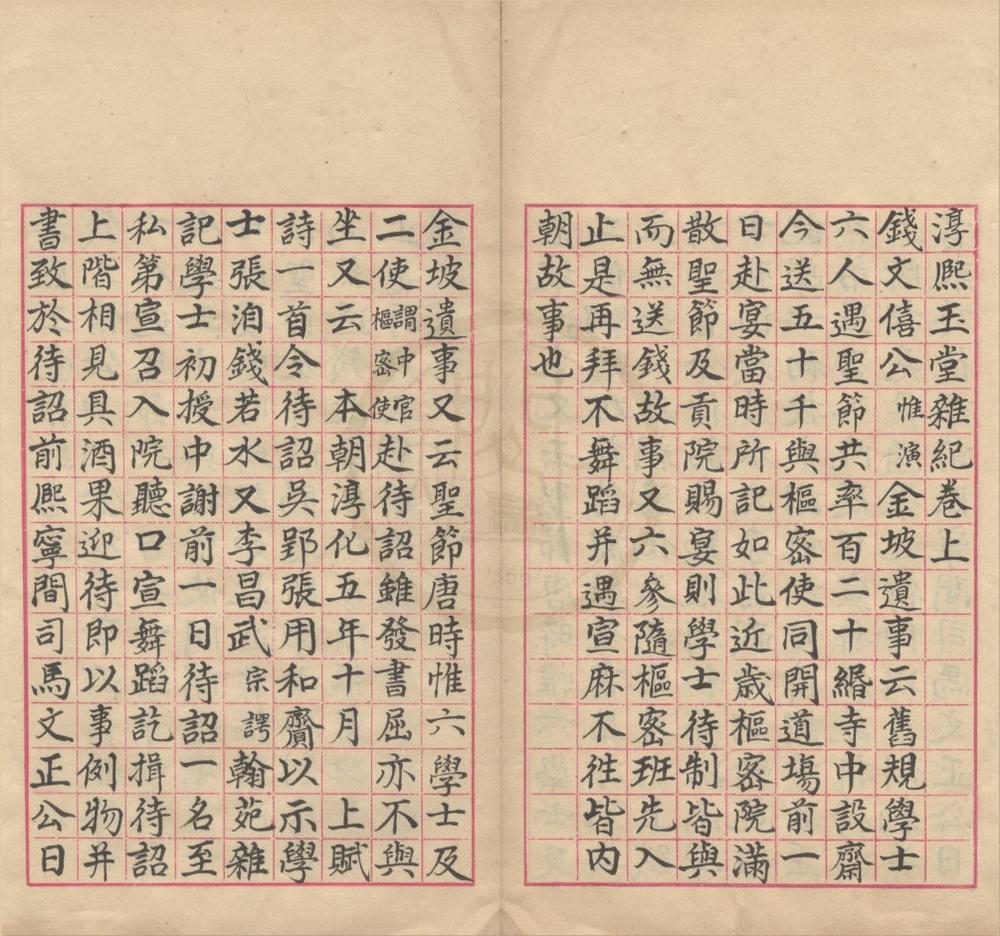 淳熙玉堂雜紀卷上
錢文僖公惟演金坡遺事云舊規學士
六人遇聖節共率百二十緡寺中設齋
今送五十千與樞密使同開道場前一
日赴宴當時所記如此近歲樞密院滿
散聖節及貢院賜宴則學士待制皆與
而無送錢故事又六參隨樞密班先入
止是再拜不舞蹈并遇宣麻不徃皆内
朝故事也
金坡遺事又云聖節唐時惟六學士及
二使謂中官樞密使赴待詔雖發書屈亦不與
坐又云 本朝淳化五年十月 上賦
詩一首令待詔吳郢張用和齎以示學
士張洎錢若水又李昌武宗諤翰苑雜
記學士初授中謝前一日待詔一名至
私第宣召入院聽口宣舞蹈訖揖待詔
上階相見具酒果迎待即以事例物并
書致於待詔前熙寧間司馬文正公日